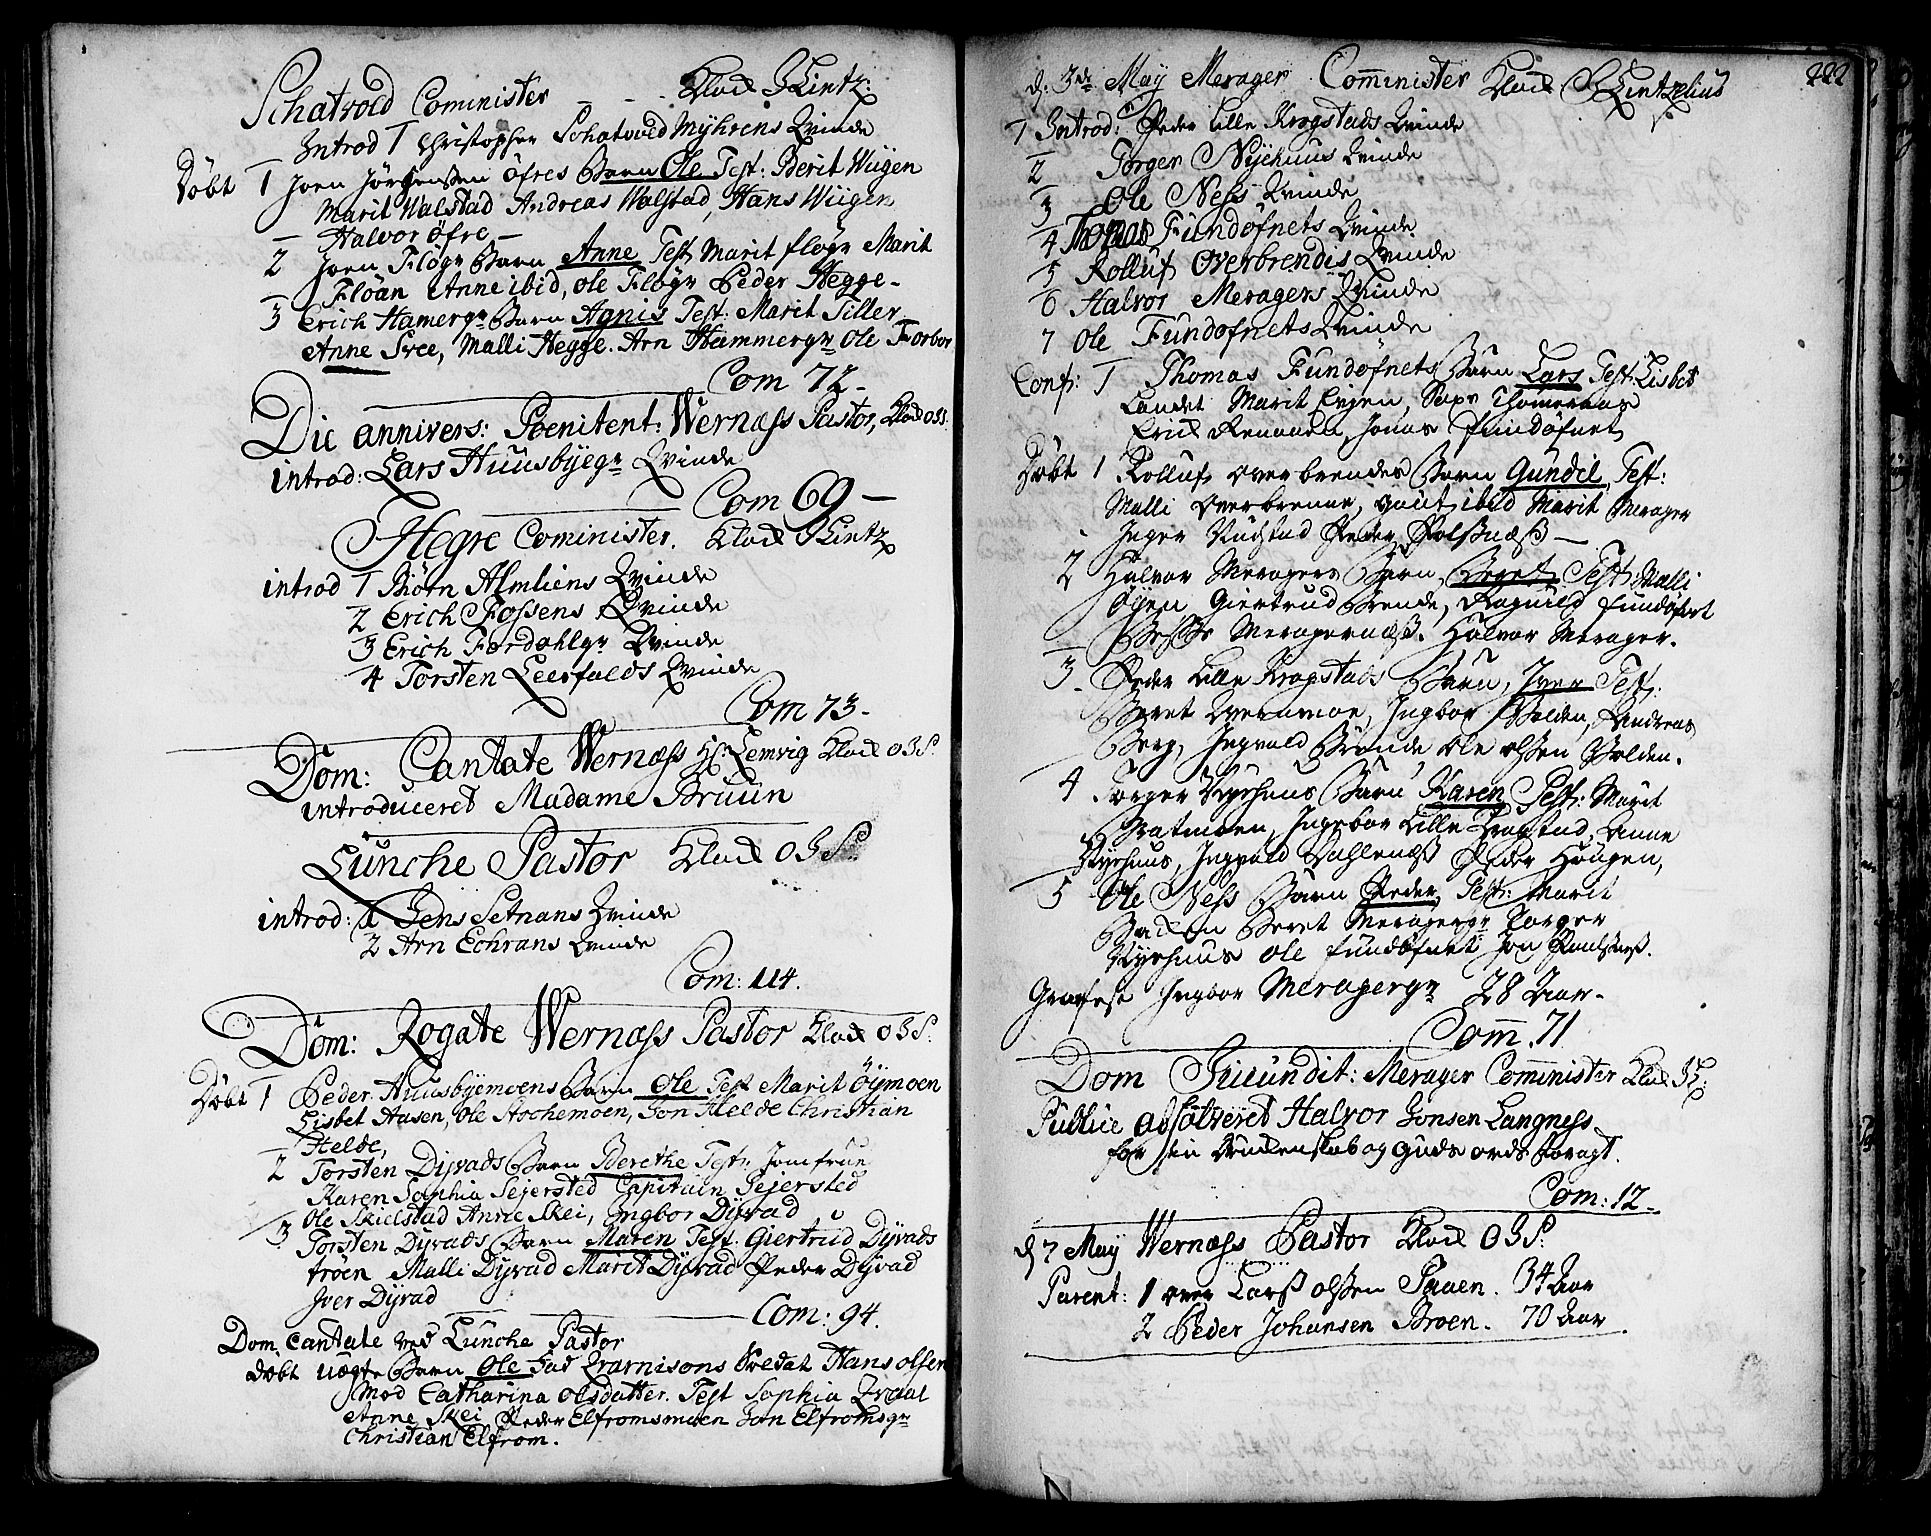 Schatvold Cominister
Introd 1 Christopher Schatvold Myhrens Qvinde
Døbt 1 Joen Jørgensen Øfres Barn Ole Test: Berit Wiigen
Marit Walstad Andreas Walstad, Hans Wiigen
Halvor Øfre
2 Joen Fløgn Barn Anne Test Marit Fløgn Marit
Floan Anne ibid, Ole Fløgn Peder Hegge
3 Erich Hamergn Barn Agnis Test: Marit Tiller
Anne Sree, Malli Hegge. Arn Hammergn Ole Forbor
Com 72
Die annivers: Poenitent: Wernæss Pastor,
introd: Lars Huusbyegn Qvinde
Com 69
Hegre Cominister.
introd 1 Biørn Almliens Qvinde
2 Erich Fossens Qvinde
3 Erich Fordahlgn Qvinde
4 Torsten Leerfalds Qvinde
Com 73
Dom: Cantate Wernæss Hr: Lemvig
introduceret Madame Bruun
Lunche Pastor
introd: 1 Jens Setnans Qvinde
2 Arn Echrans Qvinde
Com: 114.
Dom: Rogate Wernæss Pastor
Døbt 1 Peder Huusbyemoens Barn Ole Test Marit Øymoen
Lisbet Aasen, Ole Stochemoen, Jon Helde Christian
Helde,
2 Torsten Dyvads Barn Berethe Test: Jomfrue
Karen Sophia Sejersted Capitain Sejersted
Ole Skielstad Anne Skei, Ingbor Dyvad
3 Torsten Dyvads Barn Maren Test: Giertrud Dyvads
trøen Malli Dyvad Marit Dyvad Peder Dyvad
Iver Dyvad
Com: 94.
Dom. Cantate ved Lunche Pastor
døbt uægte Barn Ole Fad Qvarnisons Soldat Hans Olsen
Mod Catharina Olsdatter. Test Sophia
Anne Skei Peder Elfromsmoen Jon Elfromsgn
Christian Elfrom.
222
d: 3de May Merager Cominister
1 Introd: Peder Lille Krogstads Qvinde
2 Torger Nyehuus Qvinde
3 Ole Ness Qvinde
4 Thomas Fundøfnets Qvinde
5 Rolluf Overbrendis Qvinde
6 Halvor Meragers Qvinde
7 Ole Fundøfnets Qvinde
Conf: 1 Thomas Fundøfnets Barn Lars Test: Lisbet
Landet Marit Evjen,
Erich Jonas Fundøfnet
Døbt 1 Rolluf Overbrendes Barn Gundil Test:
Malli Overbrenne, ibid Marit Merager
Inger Rudstad Peder
2 Halvor Meragers Barn Beret Test: Malli
Øyen Giertrud Brende, Ragnild Fundøfnet
Meragernæss. Halvor Merager.
3 Peder Lille Krogstads Barn, Iver Test:
Beret Ingbor Volden, Andreas
Berg, Ingvald Brende Ole Olsen Volden.
4 Torger Nyehuus Barn Karen Test: Marit
Bratmoen, Ingebor Lille Krogstad, Anne
Nyehuus, Ingvald Peder Hougen,
5 Ole Ness Barn Peder, Test: Marit
Beret Meragergn Torger
Nyehuus Ole Fundøfnet Jon
Ingbor Meragergn 28 Aar
Com. 71
Dom Jucundit: Merager Cominister
Publice absolveret Halvor Jonsen Langness
for sin Drukenskab og Guds ords foragt.
Com: 12
d 7 May Wernæss Pastor
Parent: 1 over Lars Olsen 34 Aar
2 Peder Johansen Broen. 70 Aar